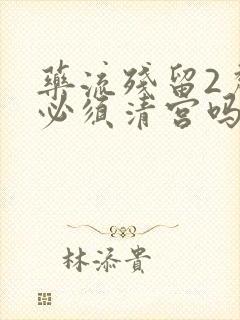 药流残留2
必须清宫吗
林添貴